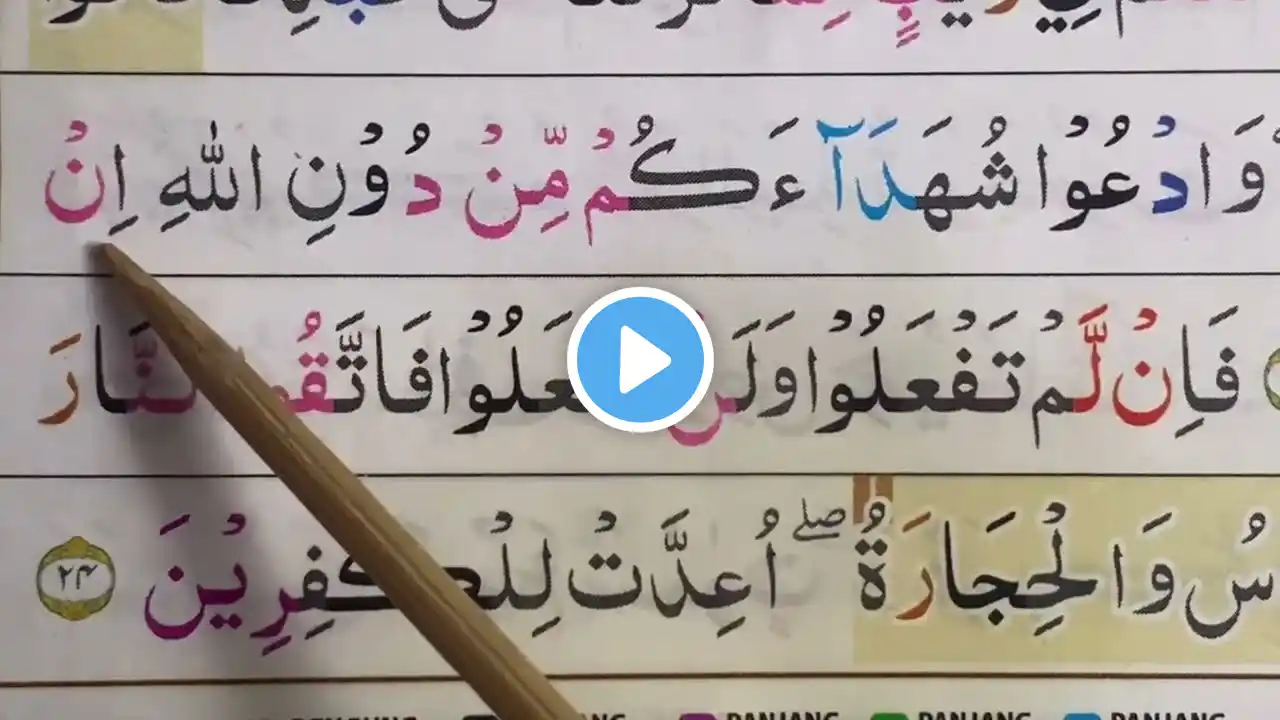 وَادْعُوْا شُهَدَآءَكُمْ مِّنْ دُوْنِ اللّٰهِ اِنْ
فَاِنْ لَّمْ تَفْعَلُوْا وَلَنْ تَفْعَلُوْا فَاتَّقُوا النَّارَ
سُ وَالْحِجَارَةُ ۖ اُعِدَّتْ لِلْكٰفِرِيْنَ ٢٤
PANJANG PANJANG PANJANG